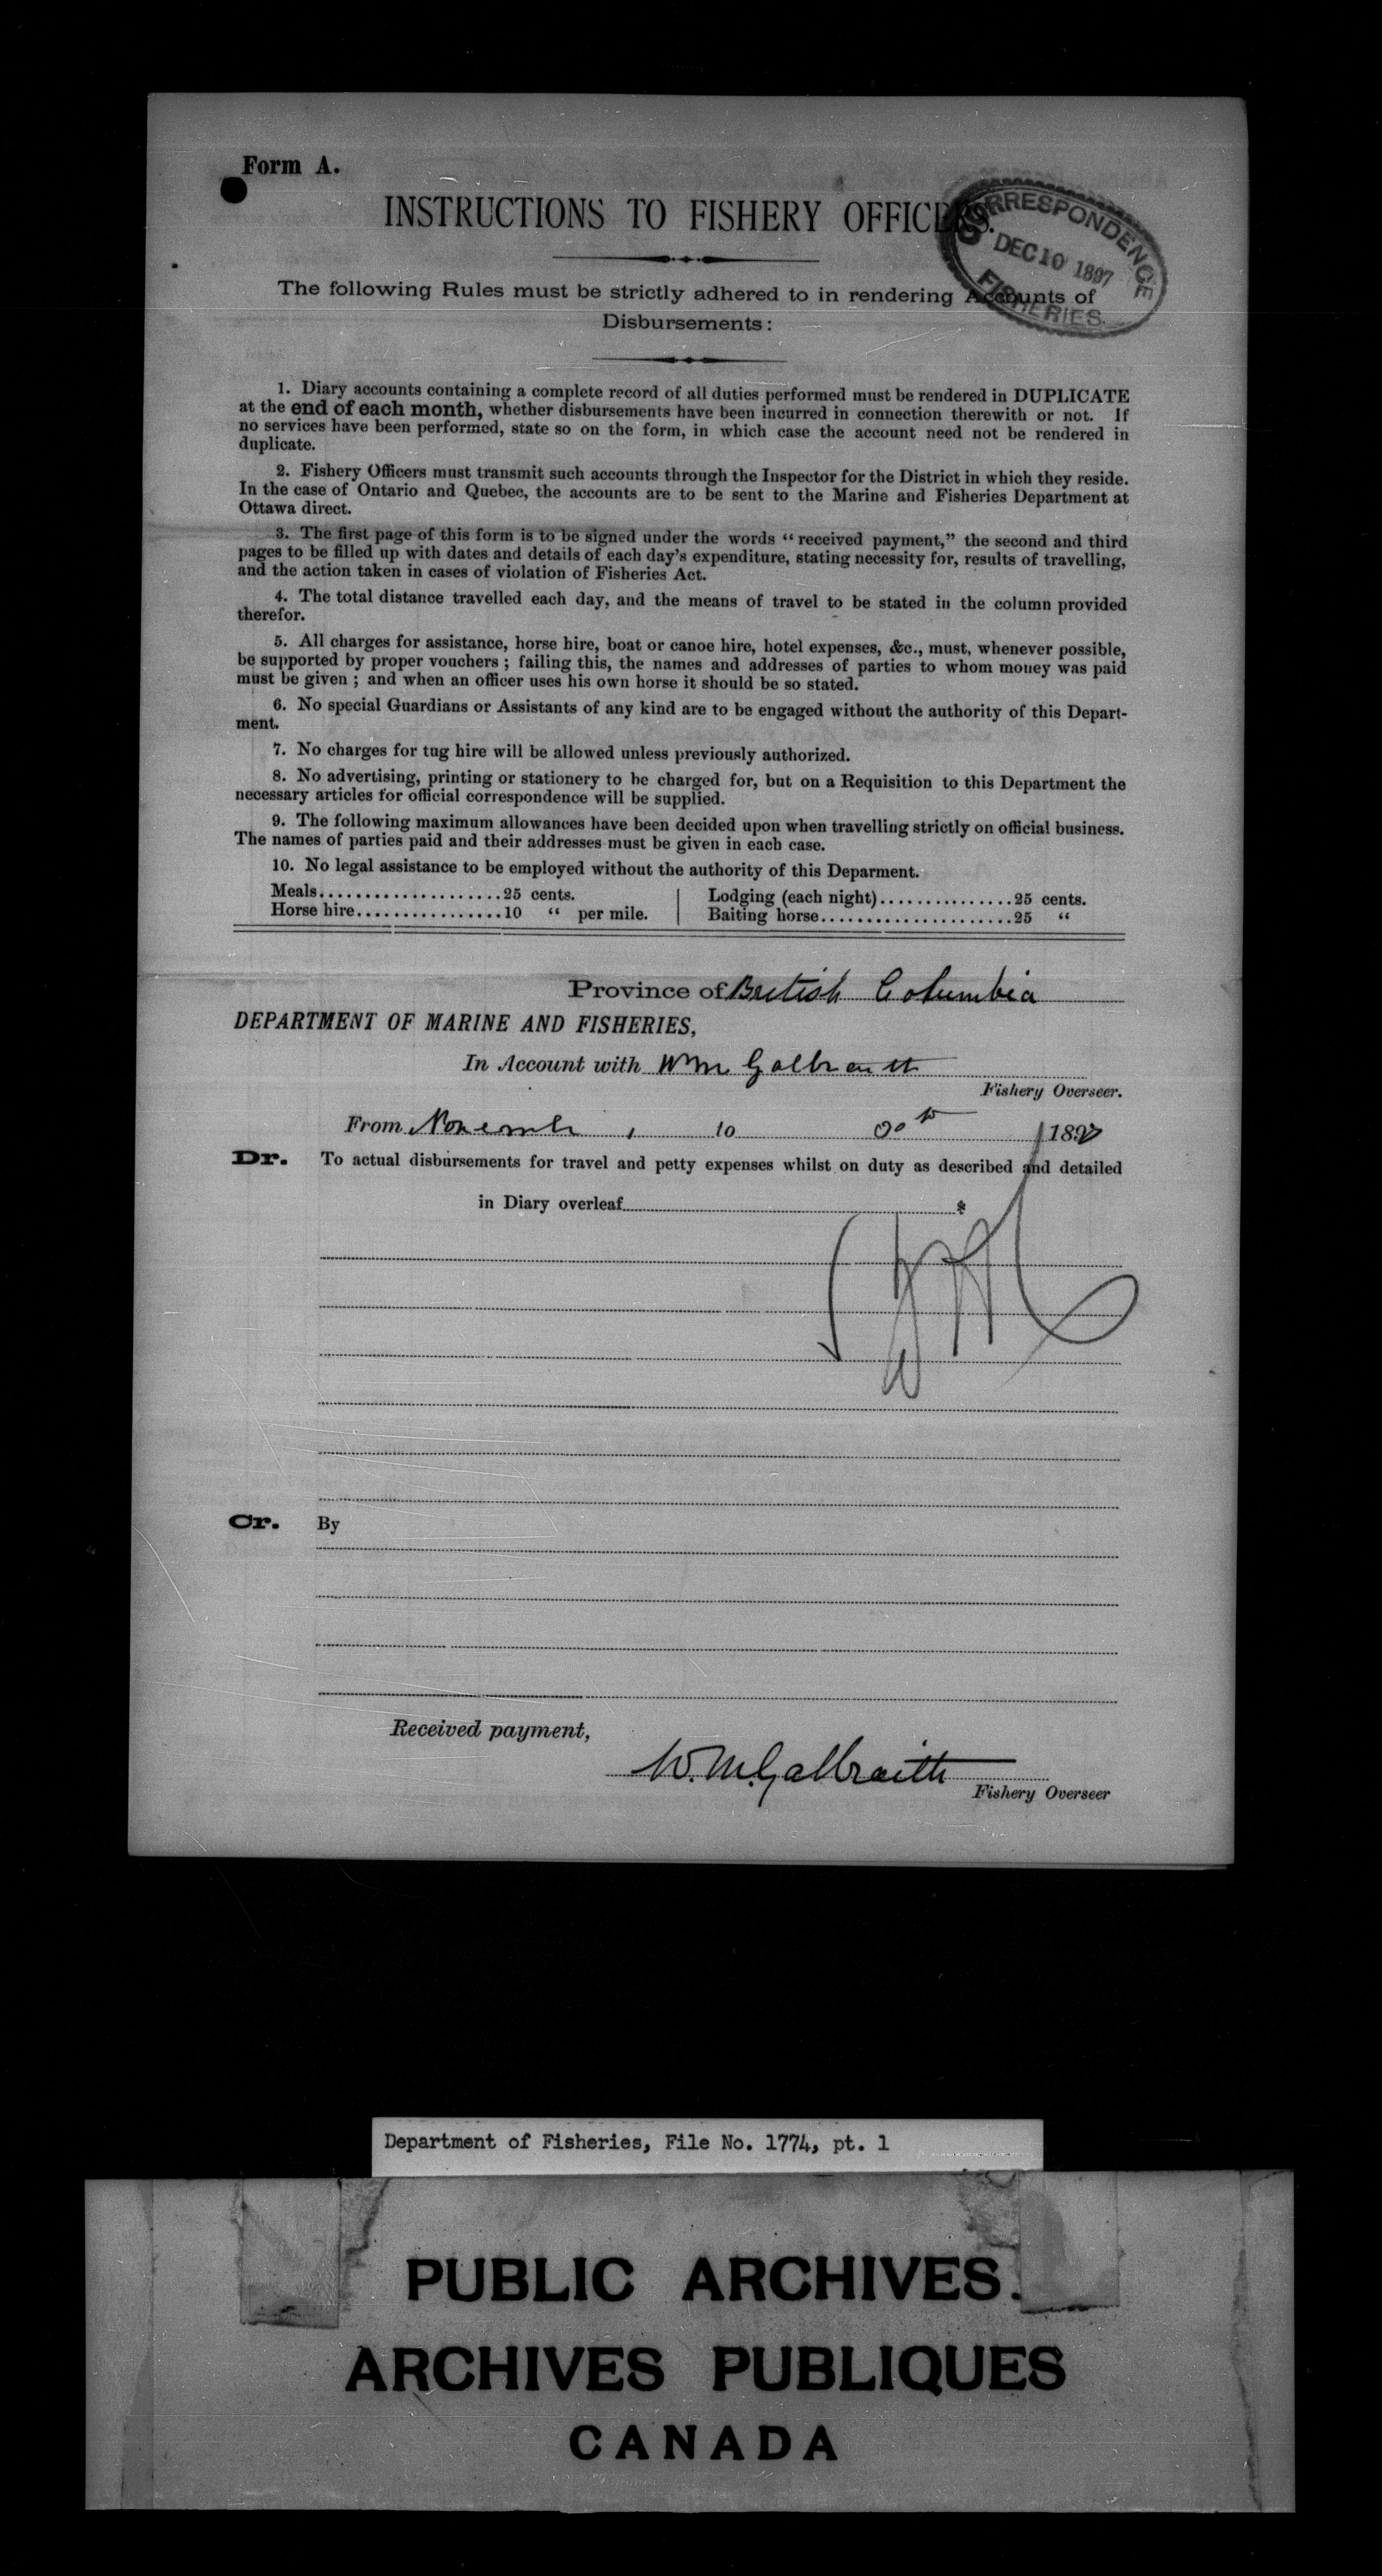 Form A.
INSTRUCTIONS TO FISHERY OFFICERS.
CORRESPONDENCE
DEC 10 1897
FISHERIES.
The following Rules must be strictly adhered to in rendering Accounts of
Disbursements:
1. Diary accounts containing a complete record of all duties performed must be rendered in DUPLICATE
at the end of each month, whether disbursements have been incurred in connection therewith or not. If
no services have been performed, state so on the form, in which case the account need not be rendered in
duplicate.
2. Fishery Officers must transmit such accounts through the Inspector for the District in which they reside.
In the case of Ontario and Quebec, the accounts are to be sent to the Marine and Fisheries Department at
Ottawa direct.
3. The first page of this form is to be signed under the words "received payment," the second and third
pages to be filled up with dates and details of each day's expenditure, stating necessity for, results of travelling,
and the action taken in cases of violation of Fisheries Act.
4. The total distance travelled each day, and the means of travel to be stated in the column provided
therefor.
5. All charges for assistance, horse hire, boat or canoe hire, hotel expenses, &c., must, whenever possible,
be supported by proper vouchers; failing this, the names and addresses of parties to whom money was paid
must be given; and when an officer uses his own horse it should be so stated.
6. No special Guardians or Assistants of any kind are to be engaged without the authority of this Depart-
ment.
7. No charges for tug hire will be allowed unless previously authorized.
8. No advertising, printing or stationery to be charged for, but on a Requisition to this Department the
necessary articles for official correspondence will be supplied.
9. The following maximum allowances have been decided upon when travelling strictly on official business.
The names of parties paid and their addresses must be given in each case.
10. No legal assistance to be employed without the authority of this Deparment.
Meals....................25 cents. Lodging (each night)...............25 cents.
Horse hire................10 " per mile. Baiting horse.....................25 "
Province of British Columbia
DEPARTMENT OF MARINE AND FISHERIES,
In Account with Wm Galbraith
Fishery Overseer.
From November 1 to 30th 1897
Dr. To actual disbursements for travel and petty expenses whilst on duty as described and detailed
in Diary overleaf $
Cr. By
Received payment,
W. M. Galbraith
Fishery Overseer
Department of Fisheries, File No. 1774, pt. 1
PUBLIC ARCHIVES.
ARCHIVES PUBLIQUES
CANADA